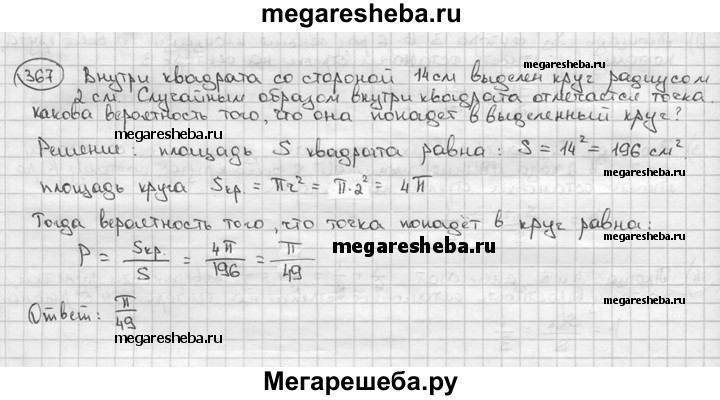 megaresheba.ru
367 Внутри квадрата со стороной 14 см выделен круг радиусом
megaresheba.ru
2 см. Случайным образом внутри квадрата отмечается точка.
какова вероятность того, что она попадет в выделенный круг?
megaresheba.ru
Решение: площадь S квадрата равна: S = 14² = 196 см².
megaresheba.ru
площадь круга Sкр. = πr² = π·2² = 4π
Тогда вероятность того, что точка попадёт в круг равна:
megaresheba.ru
P = Sкр./S = 4π/196 = π/49
megaresheba.ru
Ответ: π/49
megaresheba.ru
Мегарешеба.ру